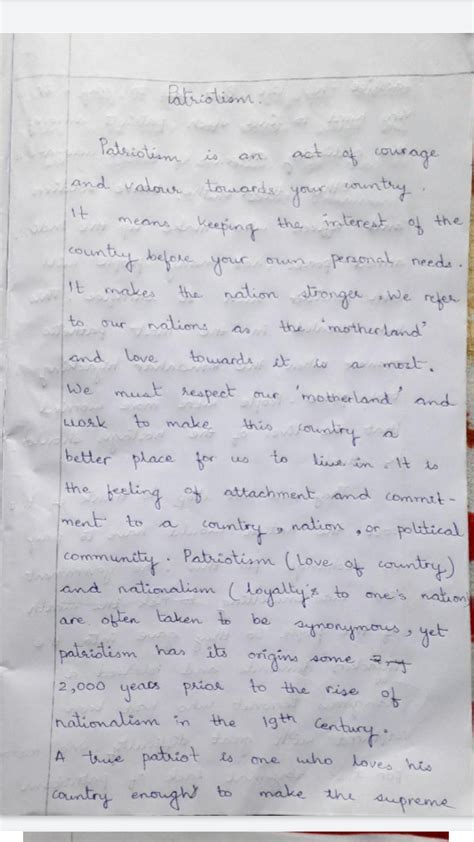 Patriotism.
Patriotism is an act of courage
and valour towards your country.
It means keeping the interest of the
country before your own personal needs.
It makes the nation stronger. We refer
to our nations as the 'motherland'
and love towards it is a most.
We must respect our 'motherland' and
work to make this country a
better place for us to live in. It is
the feeling of attachment and commit-
ment to a country, nation, or political
community. Patriotism (love of country)
and nationalism (loyalty to one's nation
are often taken to be synonymous, yet
patriotism has its origins some
2,000 years prior to the rise of
nationalism in the 19th Century.
A true patriot is one who loves his
country enough to make the supreme